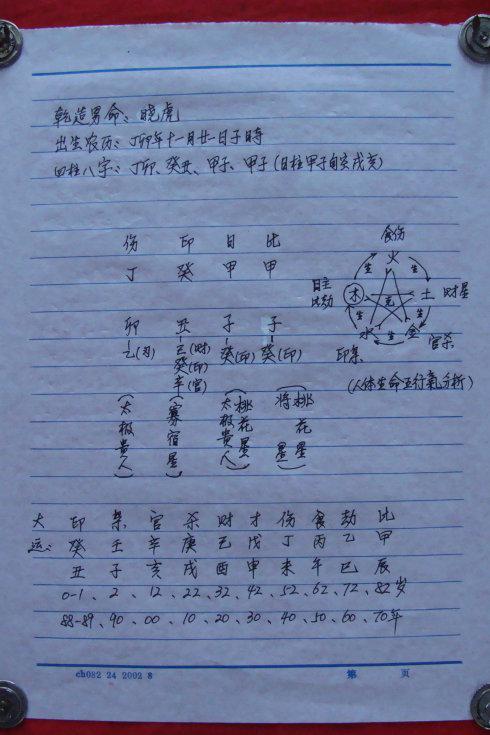 乾造男命：晓虎
出生农历：丁卯年十一月廿一日子時
四柱八字：丁卯、癸丑、甲子、甲子(日柱甲子旬空戌亥)
伤 印 日 比
丁 癸 甲 甲
卯 丑 子 子
乙(刃) 己(财 癸(印) 癸(印)
癸(印
辛(官)
(太极貴人) (寡宿星) (太极貴人 桃花星) (将星 桃花星)
食伤
火
生 生
日主 比劫 木 克 土 财星
生 生
水 生 金
印枭 官杀
(人体生命五行氣分析)
大 印 枭 官 杀 财 才 伤 食 劫 比
运: 癸 壬 辛 庚 己 戊 丁 丙 乙 甲
丑 子 亥 戌 酉 申 未 午 巳 辰
0-1、2、12、22、32、42、52、62、72、82岁
88-89、90、00、10、20、30、40、50、60、70年
ch082 24 2002 8 第 页